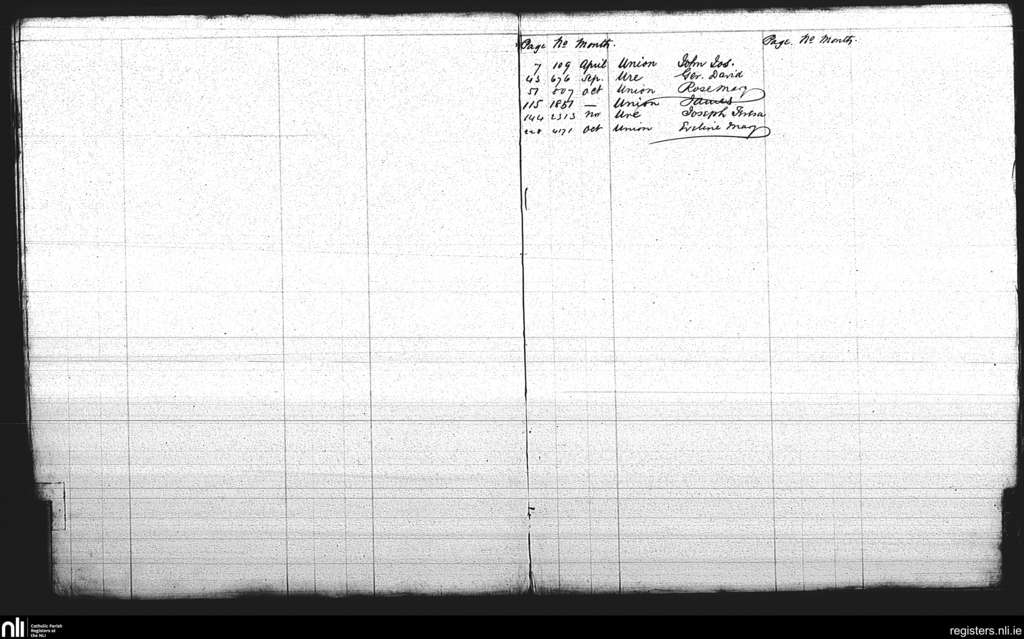 Page No Month.
7 109 April Union John Jos.
43 676 Sep. Ure Ger. David
51 807 Oct Union Rose Mary
115 1851 — Union James
144 2313 Nov Ure Joseph
228 4171 Oct Union Eveline May
Page. No Month.
nli Catholic Parish
Registers at
the NLI
registers.nli.ie